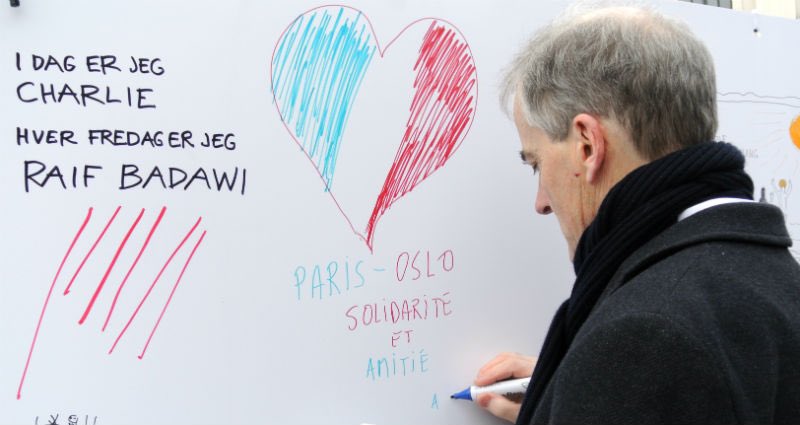 I DAG ER JEG
CHARLIE
HVER FREDAG ER JEG
RAIF BADAWI
PARIS - OSLO
SOLIDARITE
ET
AMITIÉ
A